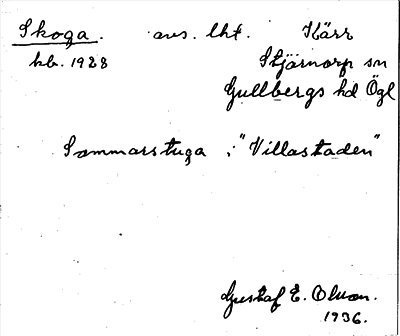 Skoga. avs. lht. Kärr
kb. 1928 Stjärnorp sn
Gullbergs hd Ögl
Sommarstuga i "Villastaden"
Gustaf E. Olson.
1936.